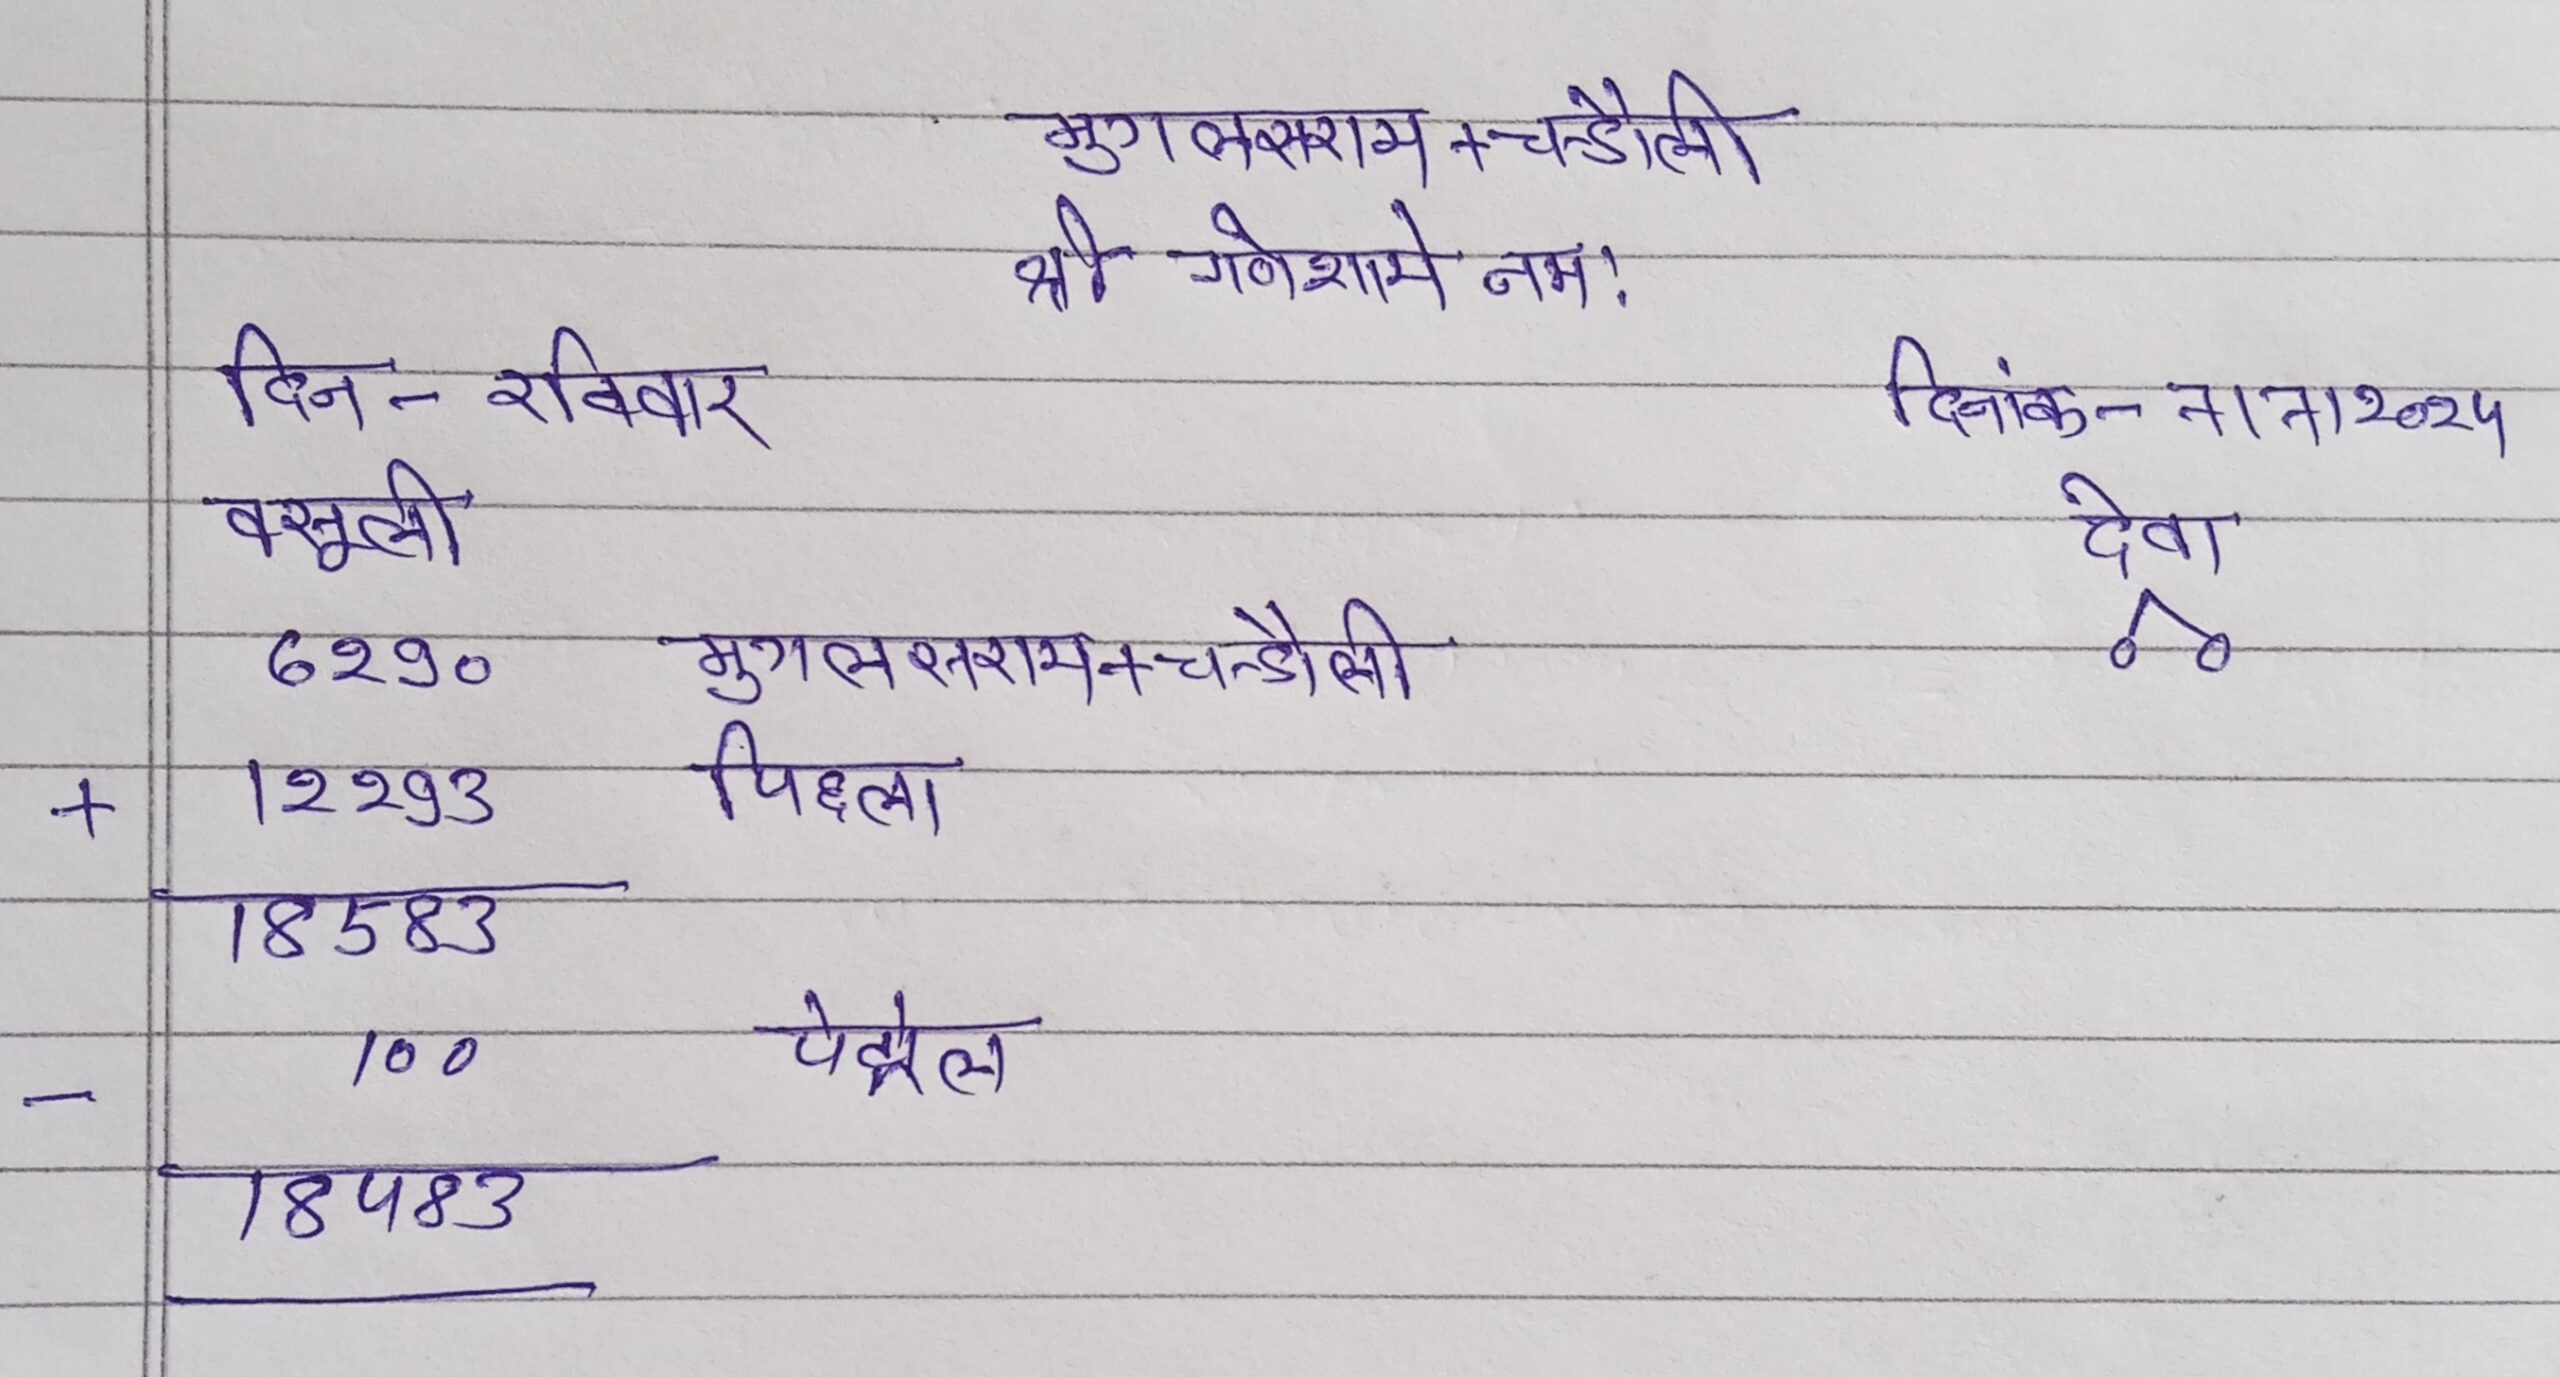 मुगलसराय + चन्डौली
श्री गणेशाये नमः
दिन - रविवार दिनांक - 7/7/2024
वसूली देवा
6290 मुगलसराय + चन्डौली
+ 12293 पिछला
18583
- 100 पेट्रोल
18483